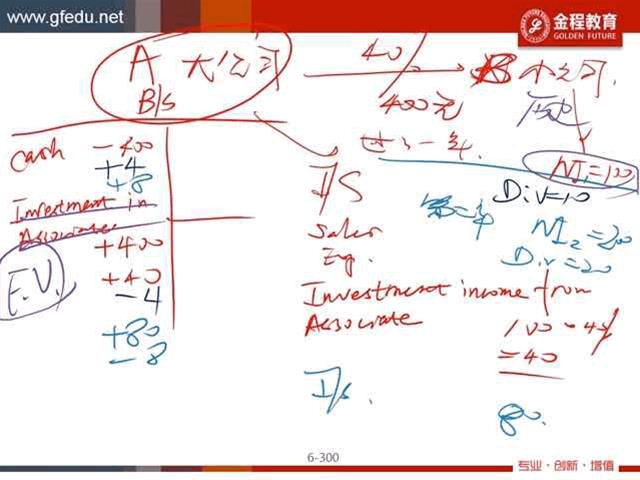 www.gfedu.net
金程教育
GOLDEN FUTURE
A 大公司
B/S
40%
400元
B 小公司
历史
过了一年
NI₁=100
Div=10
第二年
NI₂=200
Div=20
Cash -400
+4
+8
Investment in
Associates
+400
+40
-4
+80
-8
I/S
Sales
Exp.
Investment income from
Associate
100×40%
=40
I/S.
80.
6-300
专业·创新·增值